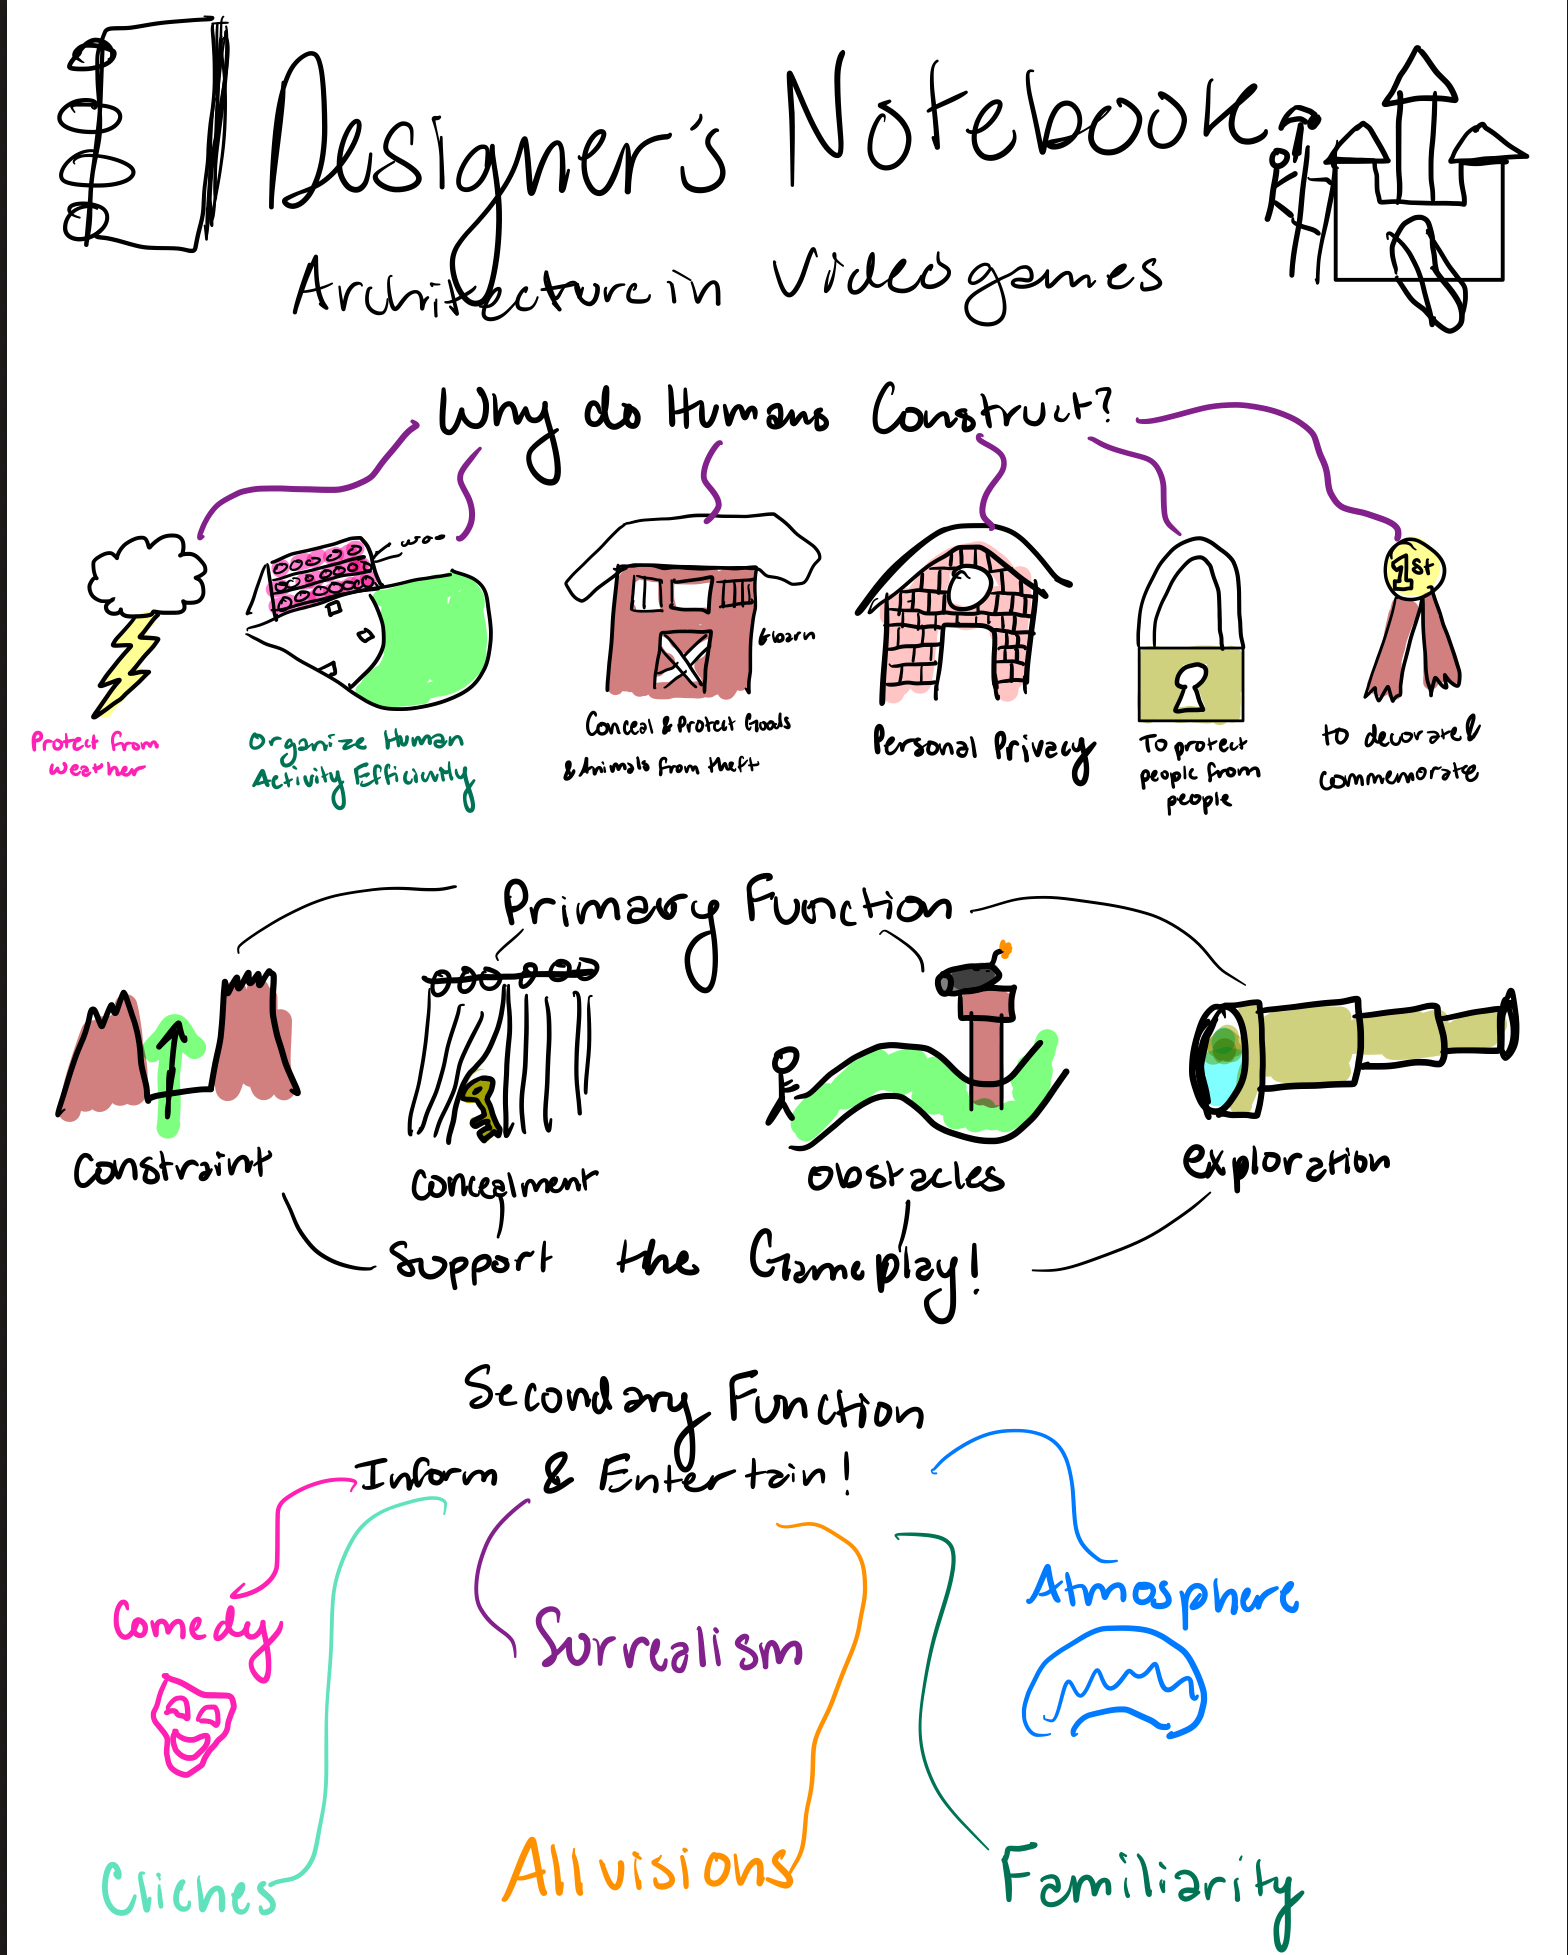 Designer's Notebook
Architecture in Videogames
Why do Humans Construct?
woo
1st
Gbarn
Protect from
weather
Organize Human
Activity Efficiently
Conceal & Protect Goods
& Animals from theft
Personal Privacy
To protect
people from
people
to decorate &
commemorate
Primary Function
Constraint
Concealment
Obstacles
exploration
Support the Gameplay!
Secondary Function
Inform & Entertain!
Comedy
Surrealism
Atmosphere
Cliches
Allvisions
Familiarity